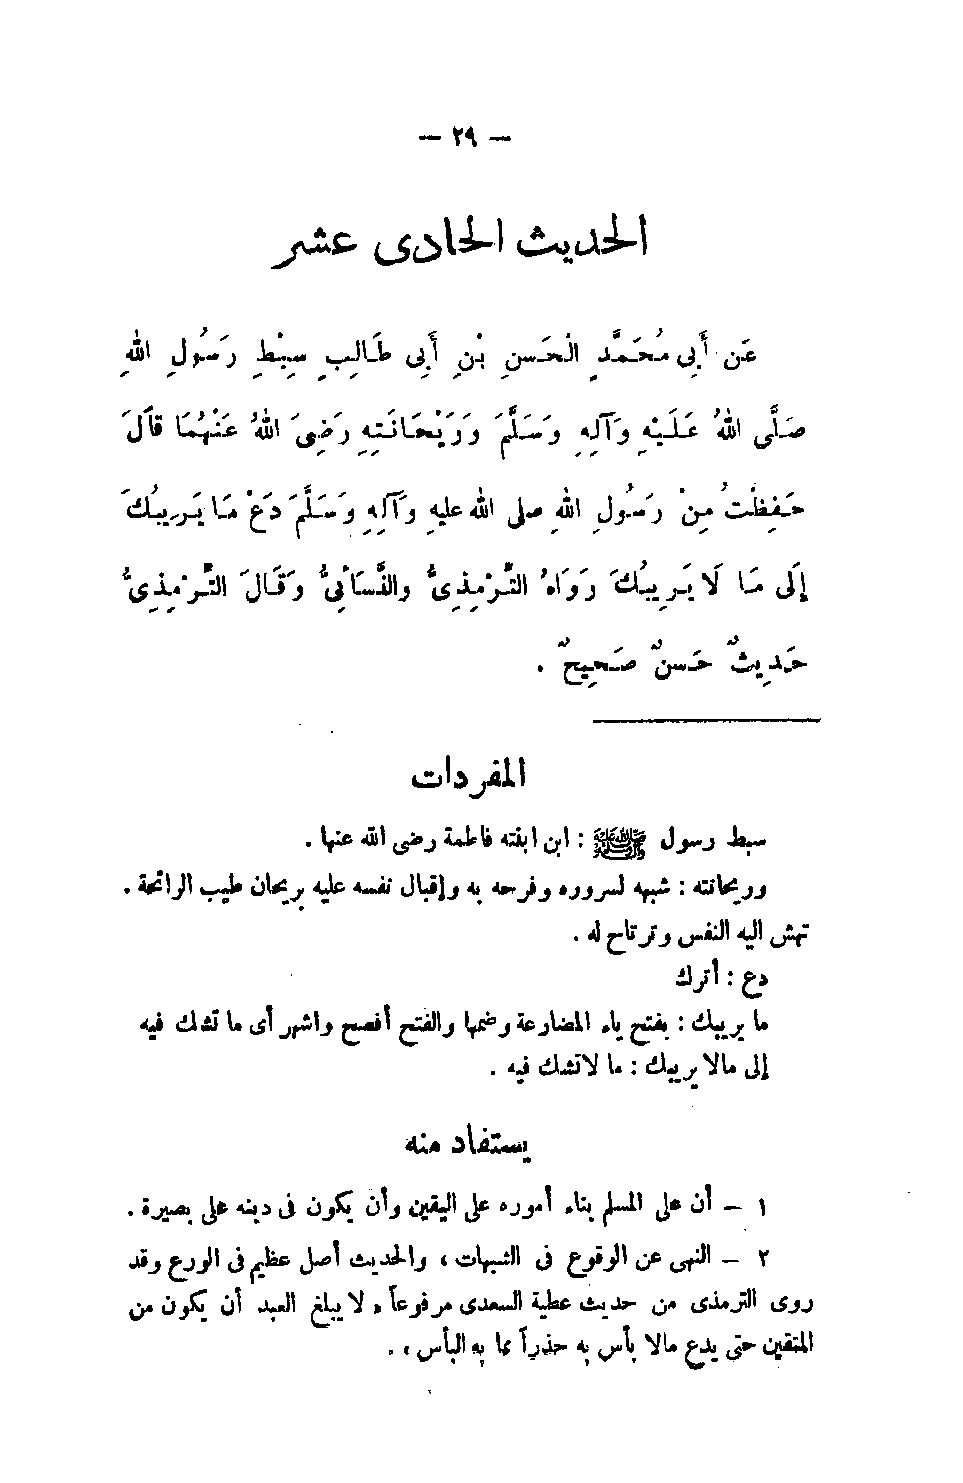 — ٢٩ —
الحديث الحادى عشر
عَن أَبِى مُحَمَّدٍ الْحَسَنِ بْنِ أَبِى طَالِبٍ سِبْطِ رَسُولِ اللهِ
صَلَّى اللهُ عَلَيْهِ وَآلِهِ وَسَلَّمَ وَرَيْحَانَتِهِ رَضِىَ اللهُ عَنْهُمَا قَالَ
حَفِظْتُ مِنْ رَسُولِ اللهِ صلى الله عليهِ وَآلِهِ وَسَلَّمَ دَعْ مَا يَرِيبُكَ
إِلَى مَا لَا يَرِيبُكَ رَوَاهُ التِّرْمِذِىُّ والنَّسَائِىُّ وَقَالَ التِّرْمِذِىُّ
حَدِيثٌ حَسَنٌ صَحِيحٌ .
المفردات
سبط رسول ﷺ : ابن ابنته فاطمة رضى الله عنها .
وريحانته : شبهه لسروره وفرحه به وإقبال نفسه عليه بريحان طيب الرائحة .
تهش اليه النفس وترتاح له .
دع : أترك
ما يريبك : بفتح ياء المضارعة وضمها والفتح أفصح واشهر أى ما تشك فيه
إلى مالا يريبك : ما لاتشك فيه .
يستفاد منه
١ – أن على المسلم بناء أموره على اليقين وأن يكون فى دينه على بصيرة .
٢ – النهى عن الوقوع فى الشبهات ، والحديث أصل عظيم فى الورع وقد
روى الترمذى من حديث عطية السعدى مرفوعاً « لا يبلغ العبد أن يكون من
المتقين حتى يدع مالا بأس به حذراً مما به البأس » .